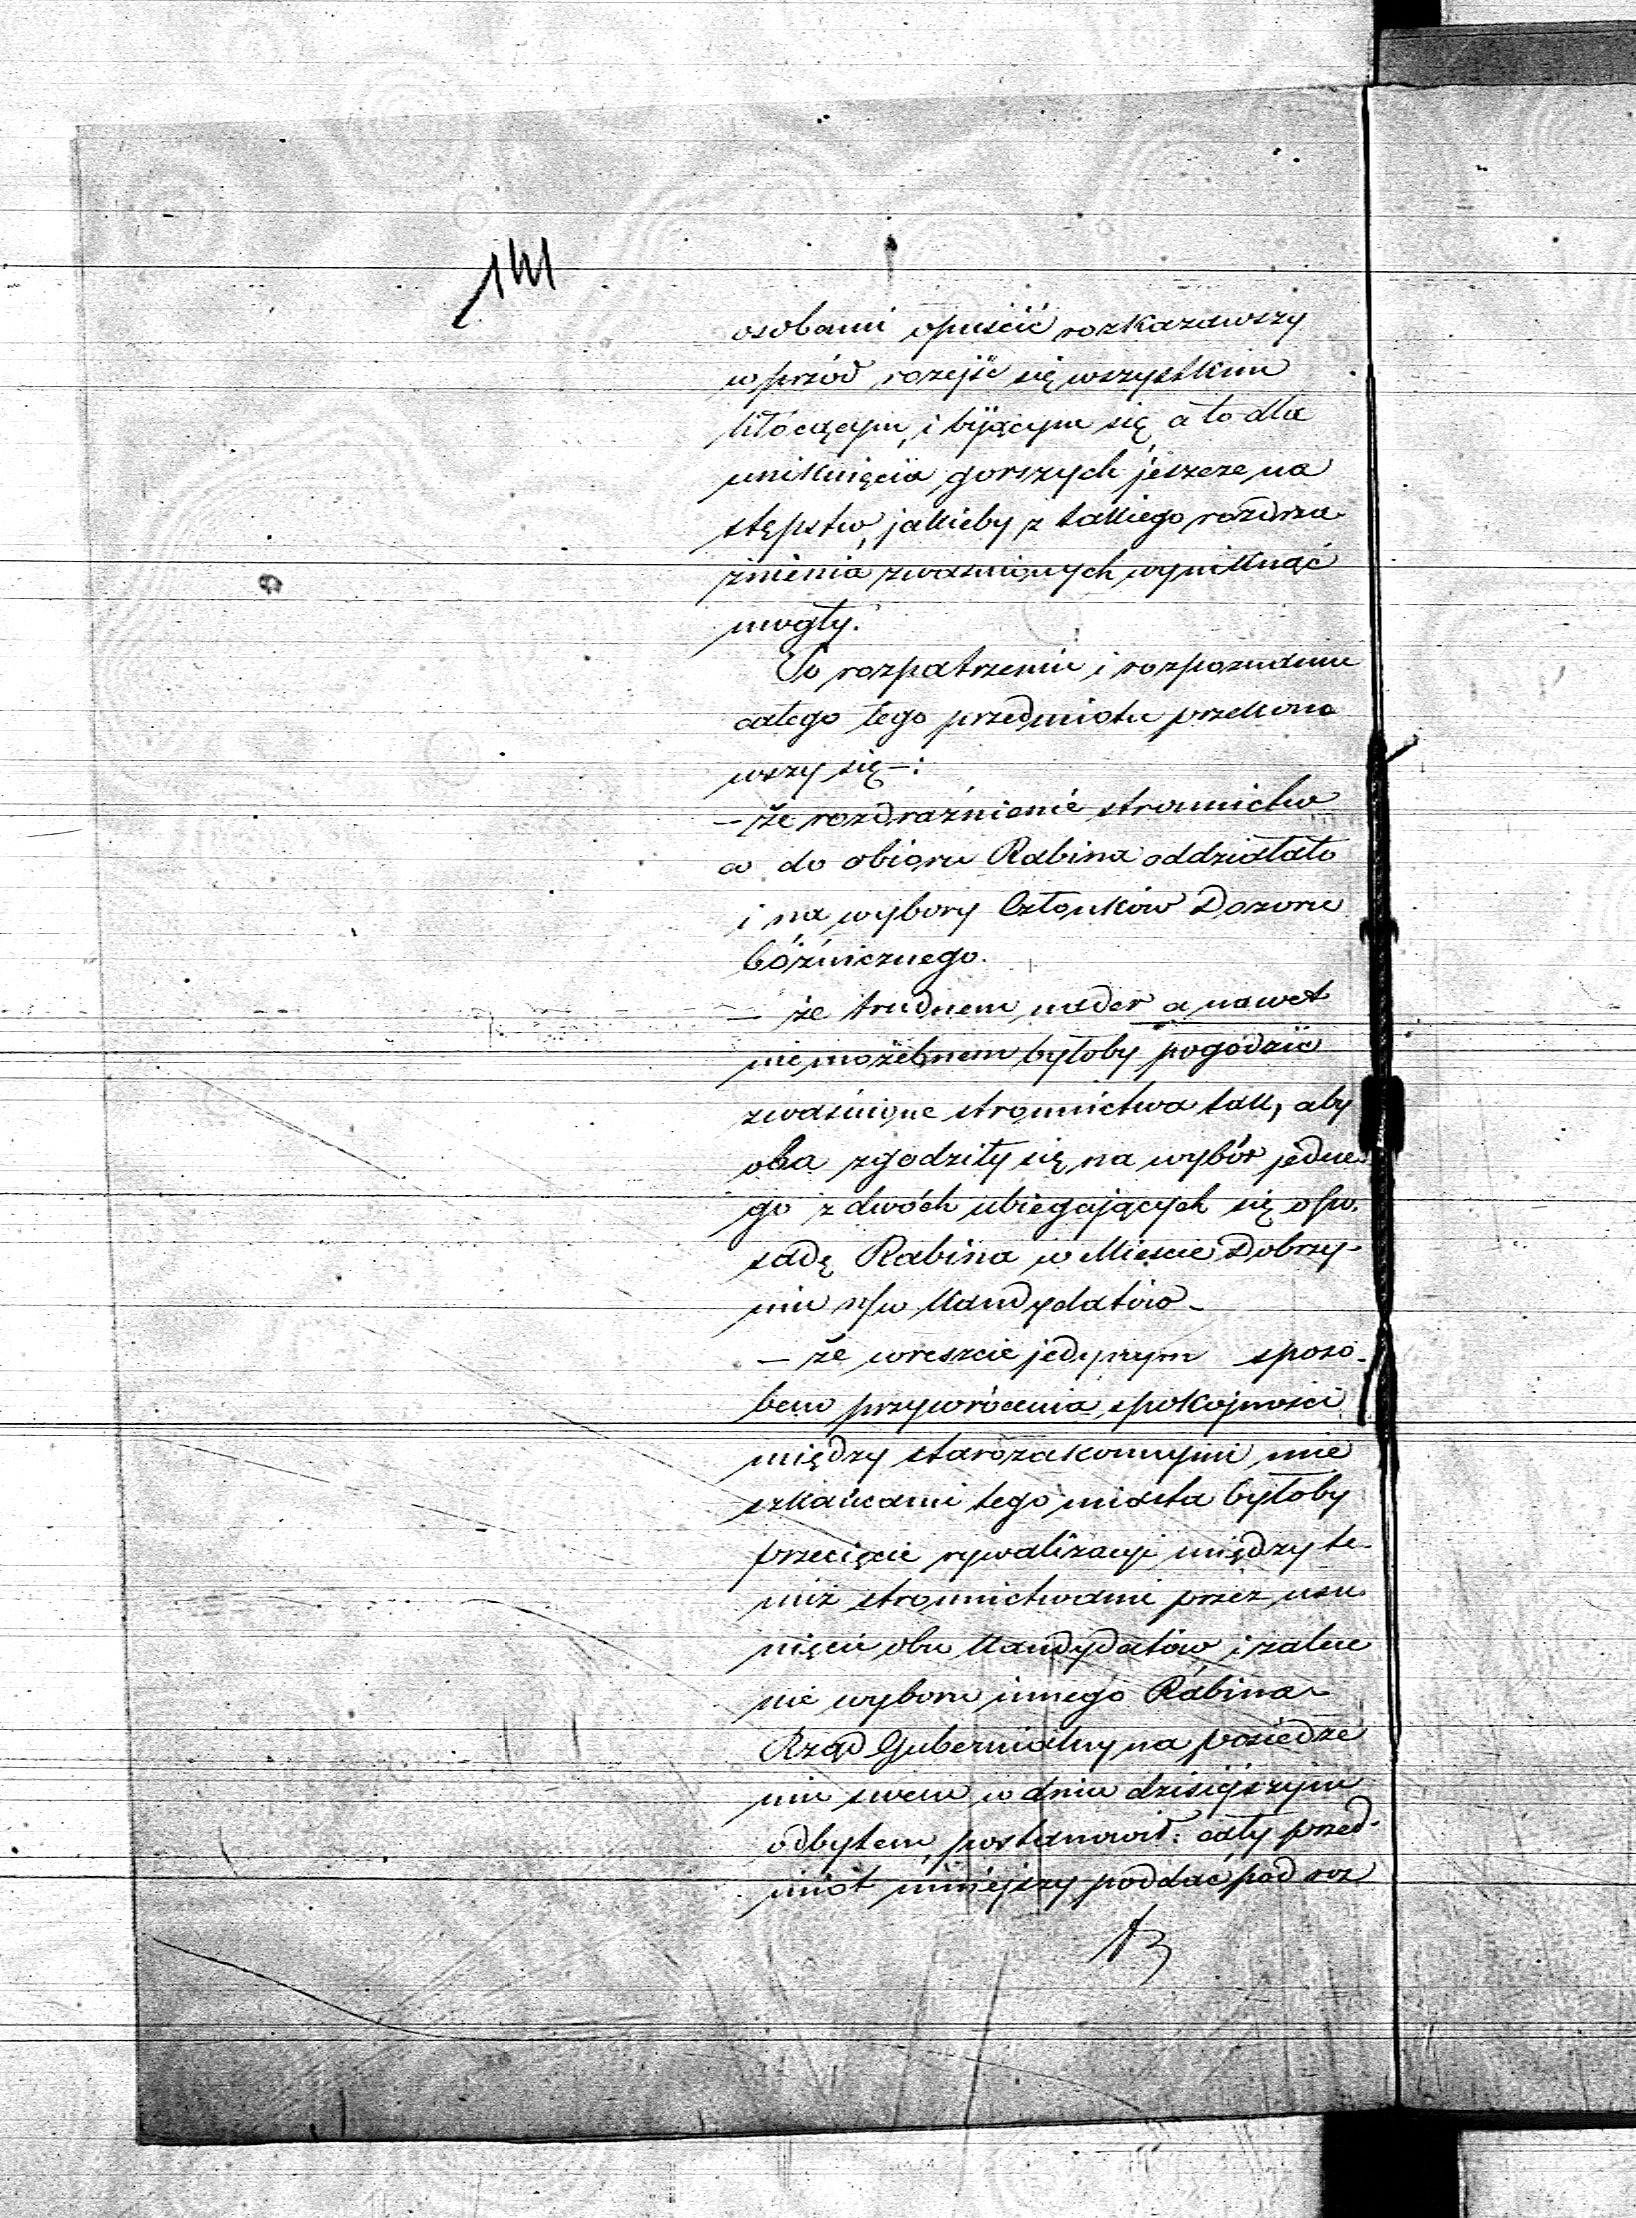 141
osobami opuścić rozkazawszy
wprzód rozejść się wszystkim
kłócącym i bijącym się a to dla
uniknięcia gorszych jeszcze na
stępstw, jakieby z takiego rozdra
żnienia zwaśnionych wyniknąć
mogły.
Po rozpatrzeniu i rozpoznaniu
całego tego przedmiotu przekona
wszy się –:
– że rozdraźnienie stronnictw
co do obioru Rabina oddziałało
i na wybory Członków Dozoru
bóźnicznego.
– że trudnem nader a nawet
niemożebnem byłoby pogodzić
zwaśnione stronnictwa tak, aby
oba zgodziły się na wybór jedne
go z dwóch ubiegających się o po-
sadę Rabina w Mieście Dobrzy-
niu n/w Kandydatów –
– że wreszcie jedynym sposo-
bem przywrócenia spokojności
między starozakonnymi mie
szkańcami tego miasta byłoby
przecięcie rywalizacyi między te-
miż stronnictwami przez usu
nięcie obu Kandydatów i zalece
nie wyboru innego Rabina –
Rząd Gubernialny na posiedze
niu swem w dniu dzisiejszym
odbytem, postanowił: cały przed-
miot niniejszy poddać pod roz